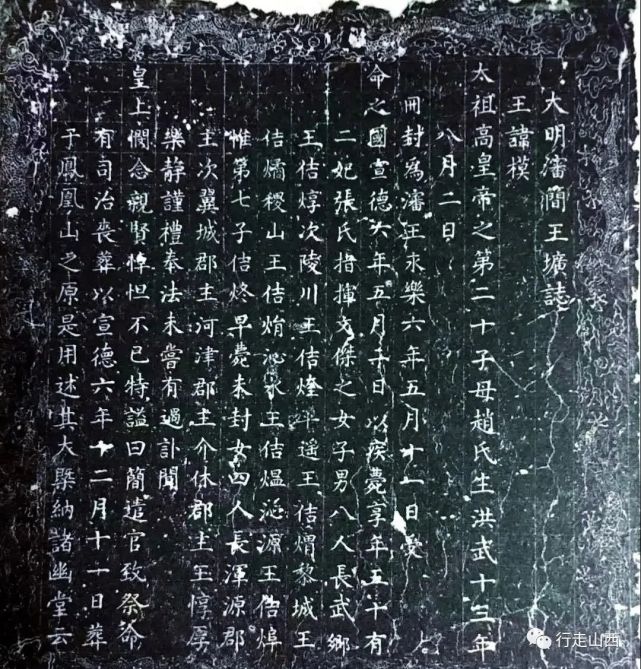 大明瀋簡王壙誌
王諱模
太祖高皇帝之第二十子母趙氏生洪武十三年
八月二日
冊封為瀋王永樂六年五月十一日受
命之國宣德六年五月十日以疾薨享年五十有
二妃張氏指揮文傑之女子男八人長武鄉
王佶焞次陵川王佶平遥王佶煟黎城王
佶燆稷山王佶焇沁水王佶熅沁源王佶
惟第七子佶炵早薨未封女四人長渾源郡
主次翼城郡主河津郡主介休郡主王惇厚
樂静謹禮奉法未嘗有過訃聞
皇上憫念親賢悼怛不已特謚曰簡遣官致祭命
有司治喪葬以宣德六年十二月十一日葬
于鳳凰山之原是用述其大槩納諸幽堂云
行走山西